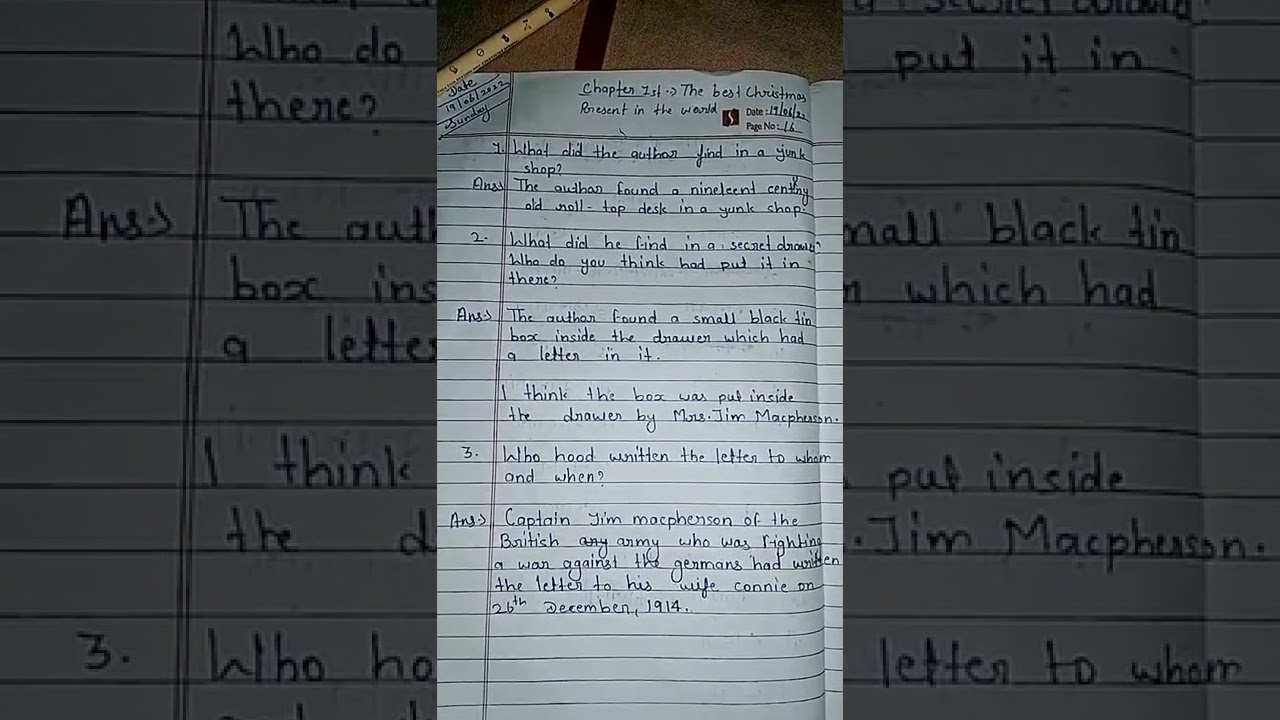 Date
19/06/2022
Sunday
Chapter 1st → The best Christmas
Present in the world
Date : 19/06/22
Page No : 16
1. What did the author find in a junk
shop?
Ans→ The author found a nineleent century
old roll-top desk in a yunk shop.
2. What did he find in a secret drawer?
Who do you think had put it in
there?
Ans→ The author found a small black tin
box inside the drawer which had
a letter in it.
I think the box was put inside
the drawer by Mrs. Jim Macpherson.
3. Who hood written the letter to whom
and when?
Ans→ Captain Jim macpherson of the
British any army who was fighting
a war against the germans had written
the letter to his wife connie on
26th December, 1914.